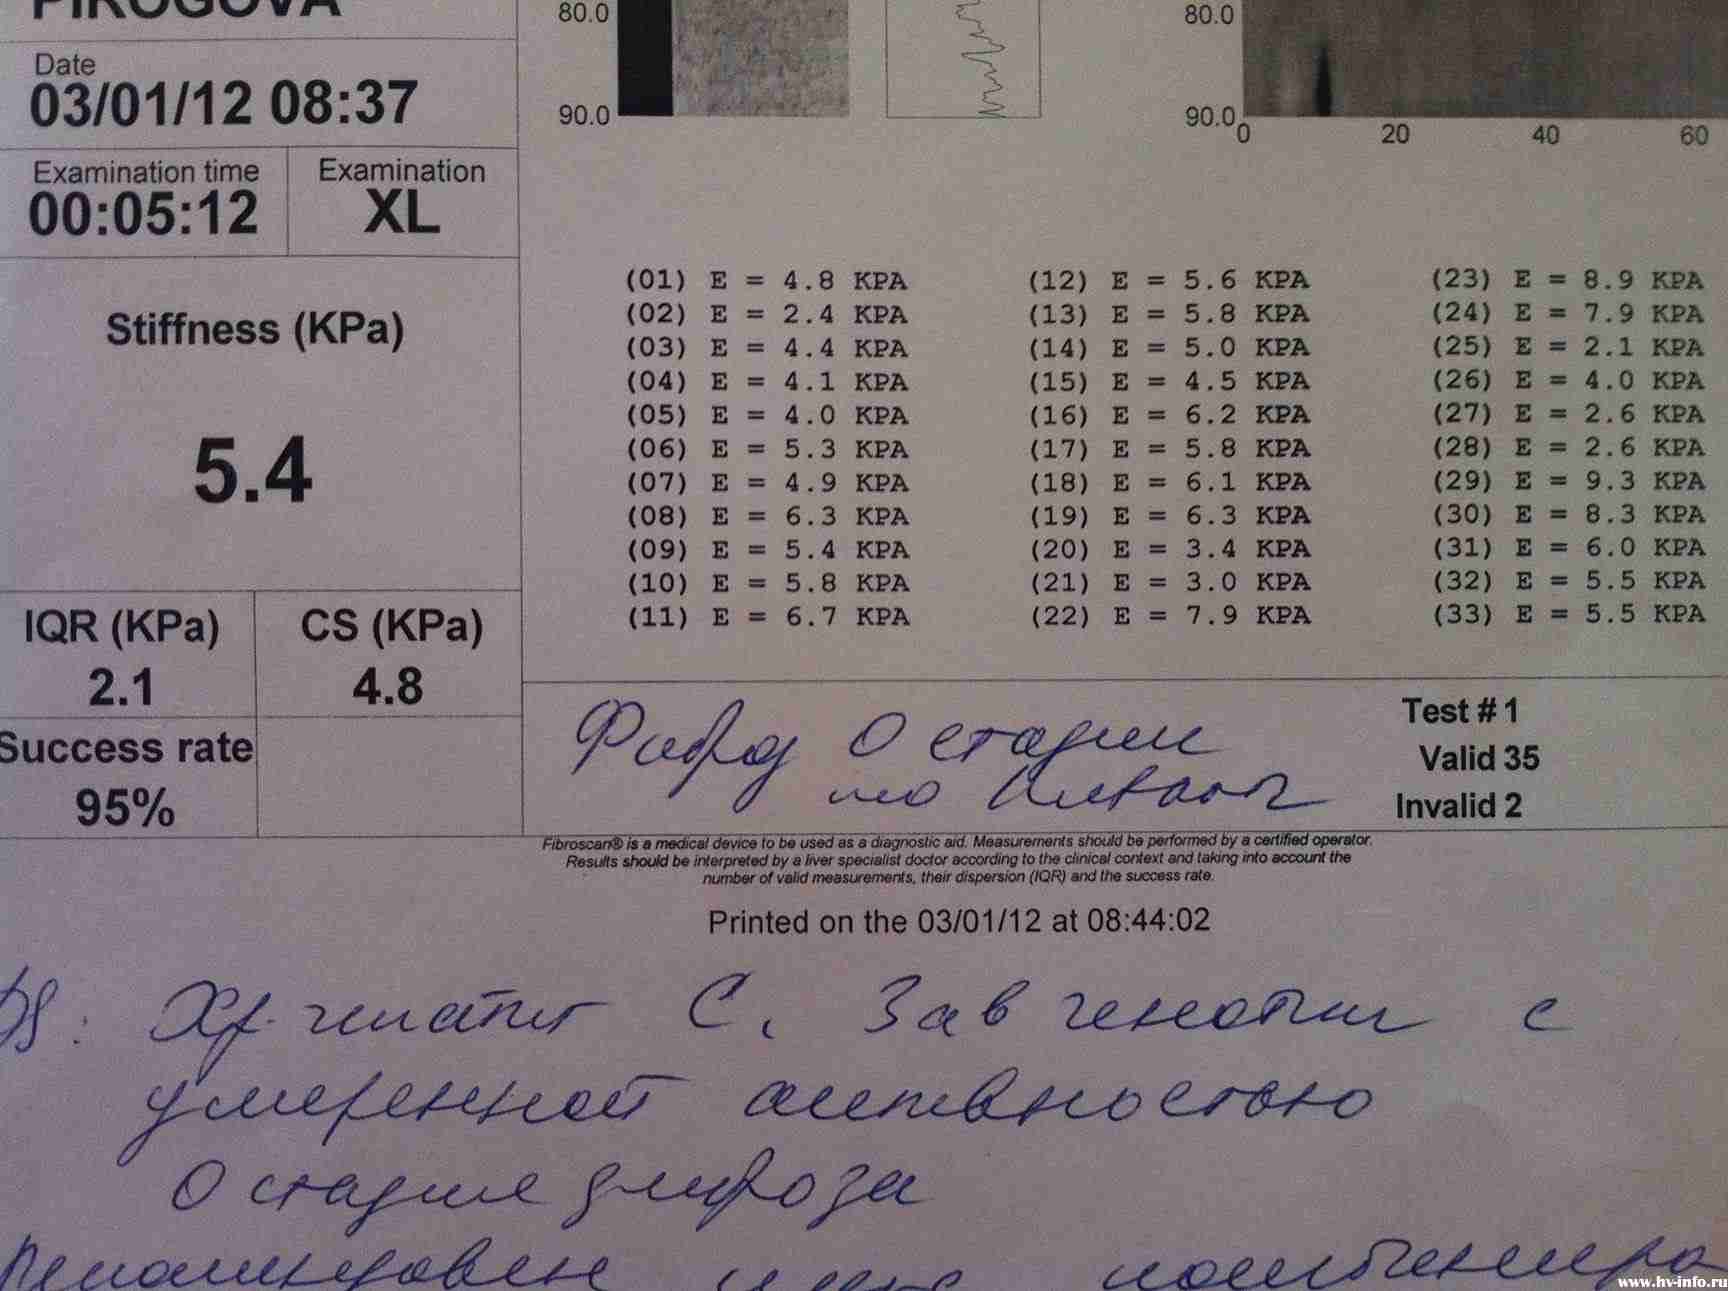 PIROGOVA
Date
03/01/12 08:37
Examination time
00:05:12
Examination
XL
Stiffness (KPa)
5.4
IQR (KPa)
2.1
CS (KPa)
4.8
Success rate
95%
80.0
90.0
80.0
90.0
0 20 40 60
(01) E = 4.8 KPA
(02) E = 2.4 KPA
(03) E = 4.4 KPA
(04) E = 4.1 KPA
(05) E = 4.0 KPA
(06) E = 5.3 KPA
(07) E = 4.9 KPA
(08) E = 6.3 KPA
(09) E = 5.4 KPA
(10) E = 5.8 KPA
(11) E = 6.7 KPA
(12) E = 5.6 KPA
(13) E = 5.8 KPA
(14) E = 5.0 KPA
(15) E = 4.5 KPA
(16) E = 6.2 KPA
(17) E = 5.8 KPA
(18) E = 6.1 KPA
(19) E = 6.3 KPA
(20) E = 3.4 KPA
(21) E = 3.0 KPA
(22) E = 7.9 KPA
(23) E = 8.9 KPA
(24) E = 7.9 KPA
(25) E = 2.1 KPA
(26) E = 4.0 KPA
(27) E = 2.6 KPA
(28) E = 2.6 KPA
(29) E = 9.3 KPA
(30) E = 8.3 KPA
(31) E = 6.0 KPA
(32) E = 5.5 KPA
(33) E = 5.5 KPA
0 стадии
по
Test # 1
Valid 35
Invalid 2
Fibroscan® is a medical device to be used as a diagnostic aid. Measurements should be performed by a certified operator.
Results should be interpreted by a liver specialist doctor according to the clinical context and taking into account the
number of valid measurements, their dispersion (IQR) and the success rate.
Printed on the 03/01/12 at 08:44:02
Ds: Хр. гепатит С, 3ав генотип с
умеренной активностью
0 стадия фиброза
www.hv-info.ru